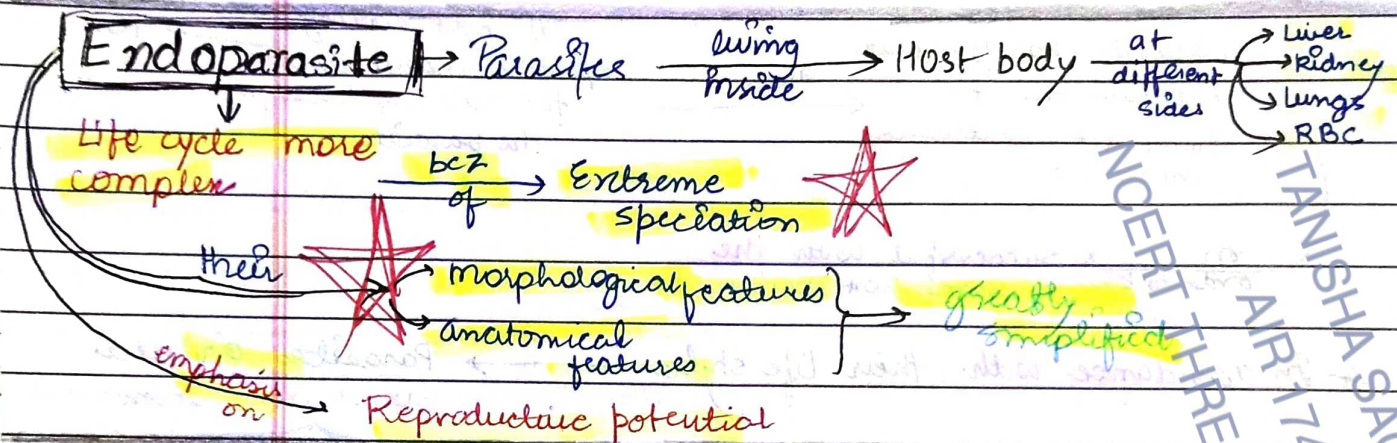 Endoparasite → Parasites living inside → Host body at different sides → Liver
→ Kidney
→ Lungs
→ RBC
Life cycle more complex bcz of → Extreme speciation
their → morphological features
→ anatomical features
→ greatly simplified
emphasis on → Reproductive potential
TANISHA SA
AIR 17
NCERT THRE